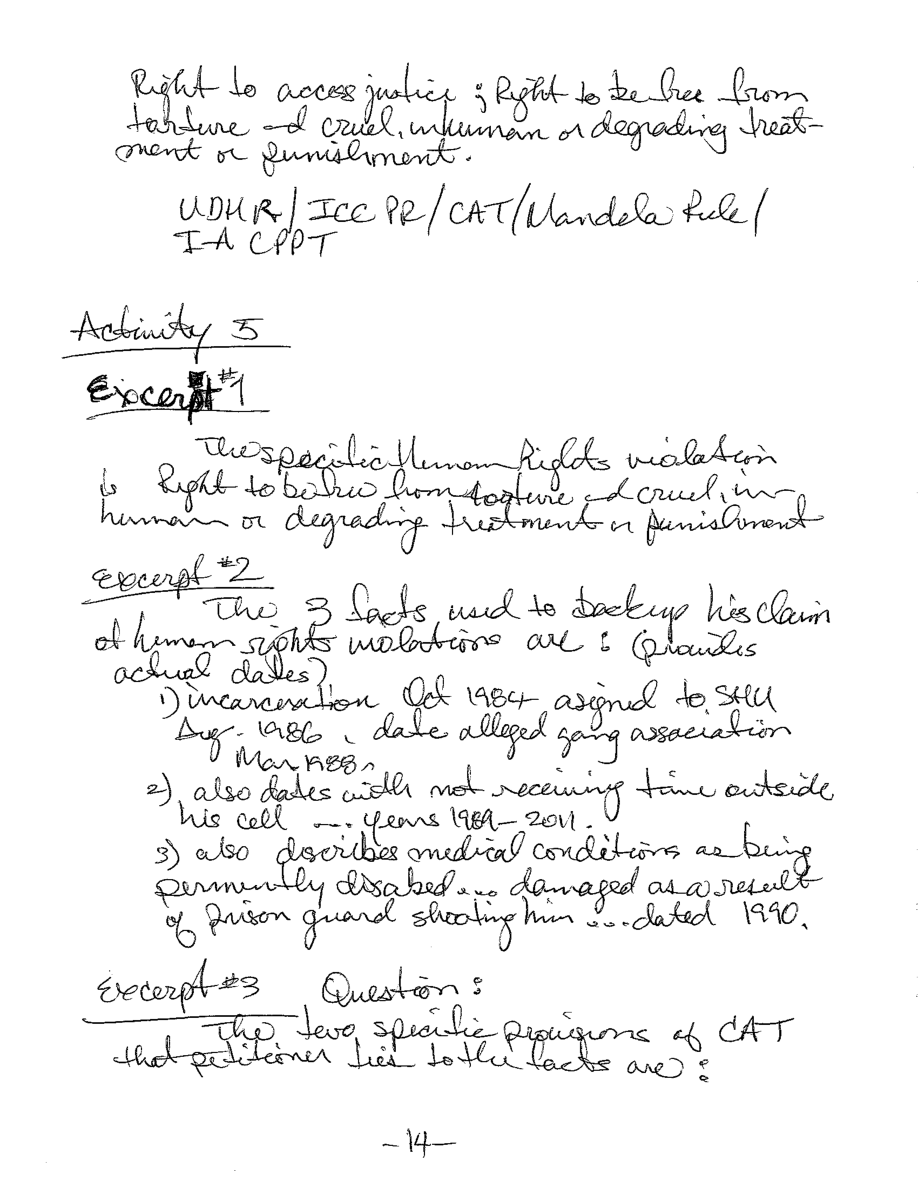 Right to access justice ; Right to be free from
torture and cruel, inhuman or degrading treat-
ment or punishment.
UDHR/ICCPR/CAT/Mandela Rule/
I-A CPPT
Activity 5
Excerpt #1
The specific Human Rights violation
is Right to be free from torture and cruel, in-
human or degrading treatment or punishment
Excerpt #2
The 3 facts used to backup his claim
of human rights violations are : (provides
actual dates)
1) incarceration Oct 1984 asigned to SHU
Aug. 1986, date alleged gang association
Mar 1988.
2) also dates with not receiving time outside
his cell .... years 1989-2011.
3) also discribes medical conditions as being
permently disabed ... damaged as a result
of prison guard shooting him ... dated 1990.
Excerpt #3 Question :
The two specific provisions of CAT
that petitioner ties to the facts are :
-14-